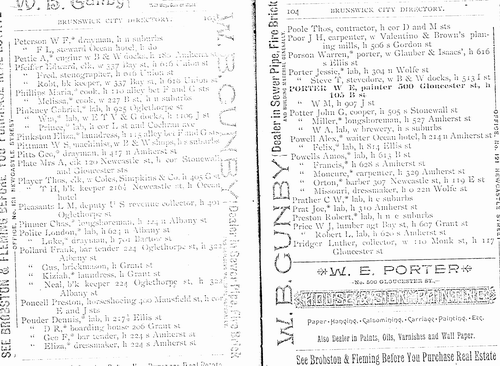 BRUNSWICK CITY DIRECTORY.
Peterson W F,* drayman, h n suburbs
" F L, steward Ocean hotel, h do
Pfeiffer
" Fred, stenographer, h 
" Robt, bk keeper, w 337 Bay st, h 
Phillips Maria,* cook, h 110 alley bet F and G sts
" Melissa,* cook, w 227 B st, h n suburbs
Pinkney Gabriel,* lab, h 925 Oglethorpe st
" Wm,* lab, w E T V & G docks, h 1109 J st
" Prince,* lab, h cor L st and Cochran ave
Pinkston Eliza,* laundress, h 114 alley bet F and G sts
Pittman W S, machinist, w B & W shops, h s suburbs
Pitts Geo,* drayman, h 417 n Amherst st
Plate Mrs A, clk 120 Newcastle st, h cor Stonewall and Gloucester sts
Player Thos, clk, w Cole, Simpkins & Co, h 405 G st
" T H, bk keeper 216½ Newcastle st, h Ocean hotel
Pleasants L M, deputy U S revenue collector, h 401 Oglethorpe st
Plumer Chas,* longshoreman, h 124 n Albany st
Polite London,* lab, h 624 n Albany st
" Luke,* drayman, h 701 Bartow st
Pollard Frank, bar tender 224 Oglethorpe st, h 322 Albany st
" Gus, brickmason, h Grant st
" Kizzia,* laundress, h Grant st
" Neal, bk keeper 224 Oglethorpe st, h 322 Albany st
Poncell Preston, horseshoeing 400 Mansfield st, h cor E and J sts
Ponder Dennis,* lab, h 217½ Ellis st
" D R,* boarding house 206 Grant st
" Geo F,* bar tender, h 224 s Amherst st
" Eliza,* dressmaker, h 224 s Amherst st
SEE BROBSTON & FLEMING BEFORE YOU PURCHASE REAL ESTATE
W. B. GUNBY
Dealer in Sewer Pipe, Fire Brick
104 BRUNSWICK CITY DIRECTORY.
Poole Thos, contractor, h cor D and M sts
Poor J H, carpenter, w Valentino & Brown's planing mills, h 506 s Gordon st
Porson Warren,* porter, w Glauber & Isaacs', h 616 s Ellis st
Porter Jessie,* lab, h 504 n Wolfe st
" Steve T, stevedore, w B & W docks, h 513 I st
PORTER W E, painter 500 Gloucester st, h 105 B st
" W M, h 907 J st
Potter John G, cooper, h 505 s Stonewall st
" Miller,* longshoreman, h 527 Amherst st
" W A, lab, w brewery, h s suburbs
Powell Alex,* waiter Ocean hotel, h 224 n Amherst st
" Felix,* lab, h 814 Ellis st
Powells Amos,* lab, h 613 H st
" Francis,* h 628 s Amherst st
" Moncure,* carpenter, h 329 Amherst st
" Orton,* barber 307 Newcastle st, h 119 E st
" Missouri, dressmaker, h 0 22n Wolfe st
Prather C W,* lab, h n suburbs
Prat Joe,* lab, h 310 Amherst st
Preston Robert,* lab, h n e suburbs
Price W J, lumber agt Bay st, h 607 Grant st
" Robert L, lab, h 620 s Amherst st
Pridger Luther, collector, w 110 Monk st, h 117 Gloucester st
W. E. PORTER
No. 500 GLOUCESTER ST.,
HOUSE & SIGN PAINTING
Paper-Hanging, Calsomining, Carpet-Painting, Etc.
Also Dealer in Paints, Oils, Varnishes and Wall Paper.
See Brobston & Fleming Before You Purchase Real Estate
W. B. GUNBY
Dealer in Sewer Pipe, Fire Brick